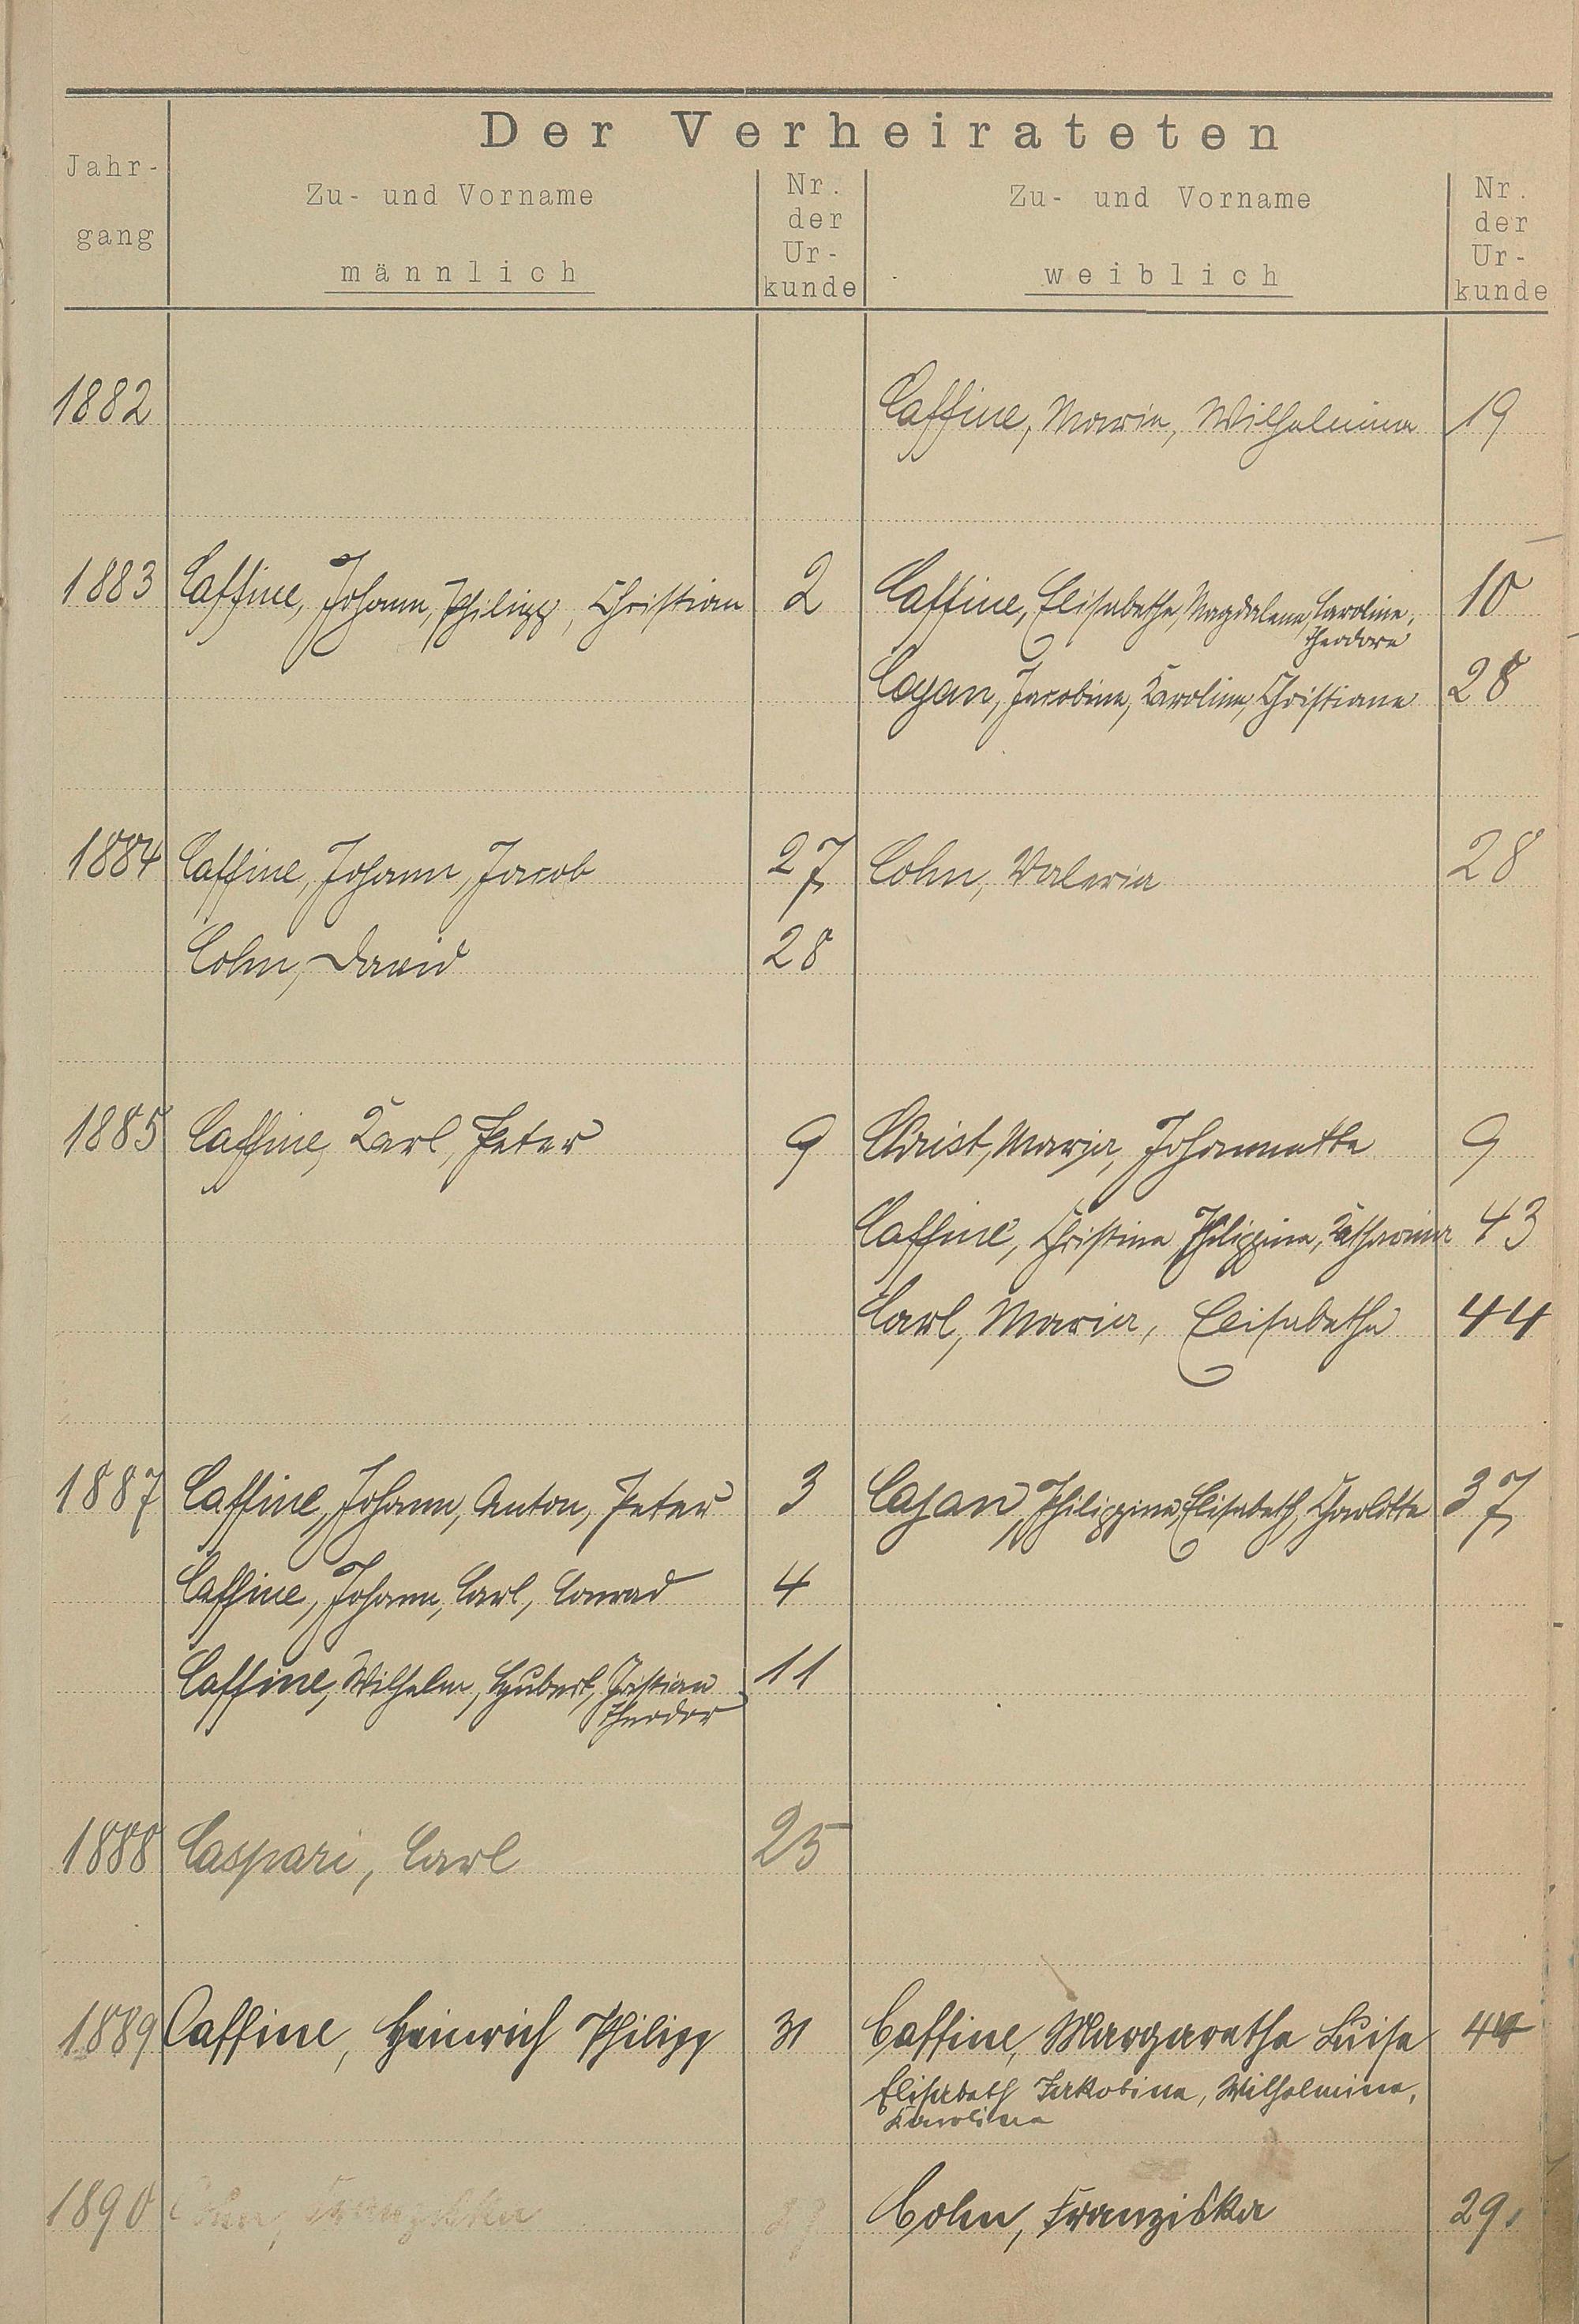 Der Verheirateten
Jahr-
gang
Zu- und Vorname
männlich
Nr.
der
Ur-
kunde
Zu- und Vorname
weiblich
Nr.
der
Ur-
kunde
1882 Caffine, Maria, Wilhelmina 19
1883 Caffine, Johann, Philipp, Christian 2 Caffine, Elisabetha, Magdalena, Caroline,  10
Theodora
Cajan, Jacobina, Karolina, Christiane 28
1884 Caffine, Johann, Jacob 27 Cohn, Valeria 28
Cohn, David 28
1885 Caffine, Karl, Peter 9 Christ, Maria, Johannette 9
Caffine, Christina Philippina, Katharina 43
Carl, Maria, Elisabetha 44
1887 Caffine, Johann, Anton, Peter 3 Cajan, Philippina, Elisabeth, Charlotte 37
Caffine, Johann, Carl, Conrad 4
Caffine, Wilhelm, Hubert, Christian 11
Theodor
1888 Caspari, Carl 25
1889 Caffine, Heinrich Philipp 31 Caffine, Margaretha Luise 44
Elisabeth Jakobina, Wilhelmine,
Karolina
1890 Cohn, Franziska 29 Cohn, Franziska 29.